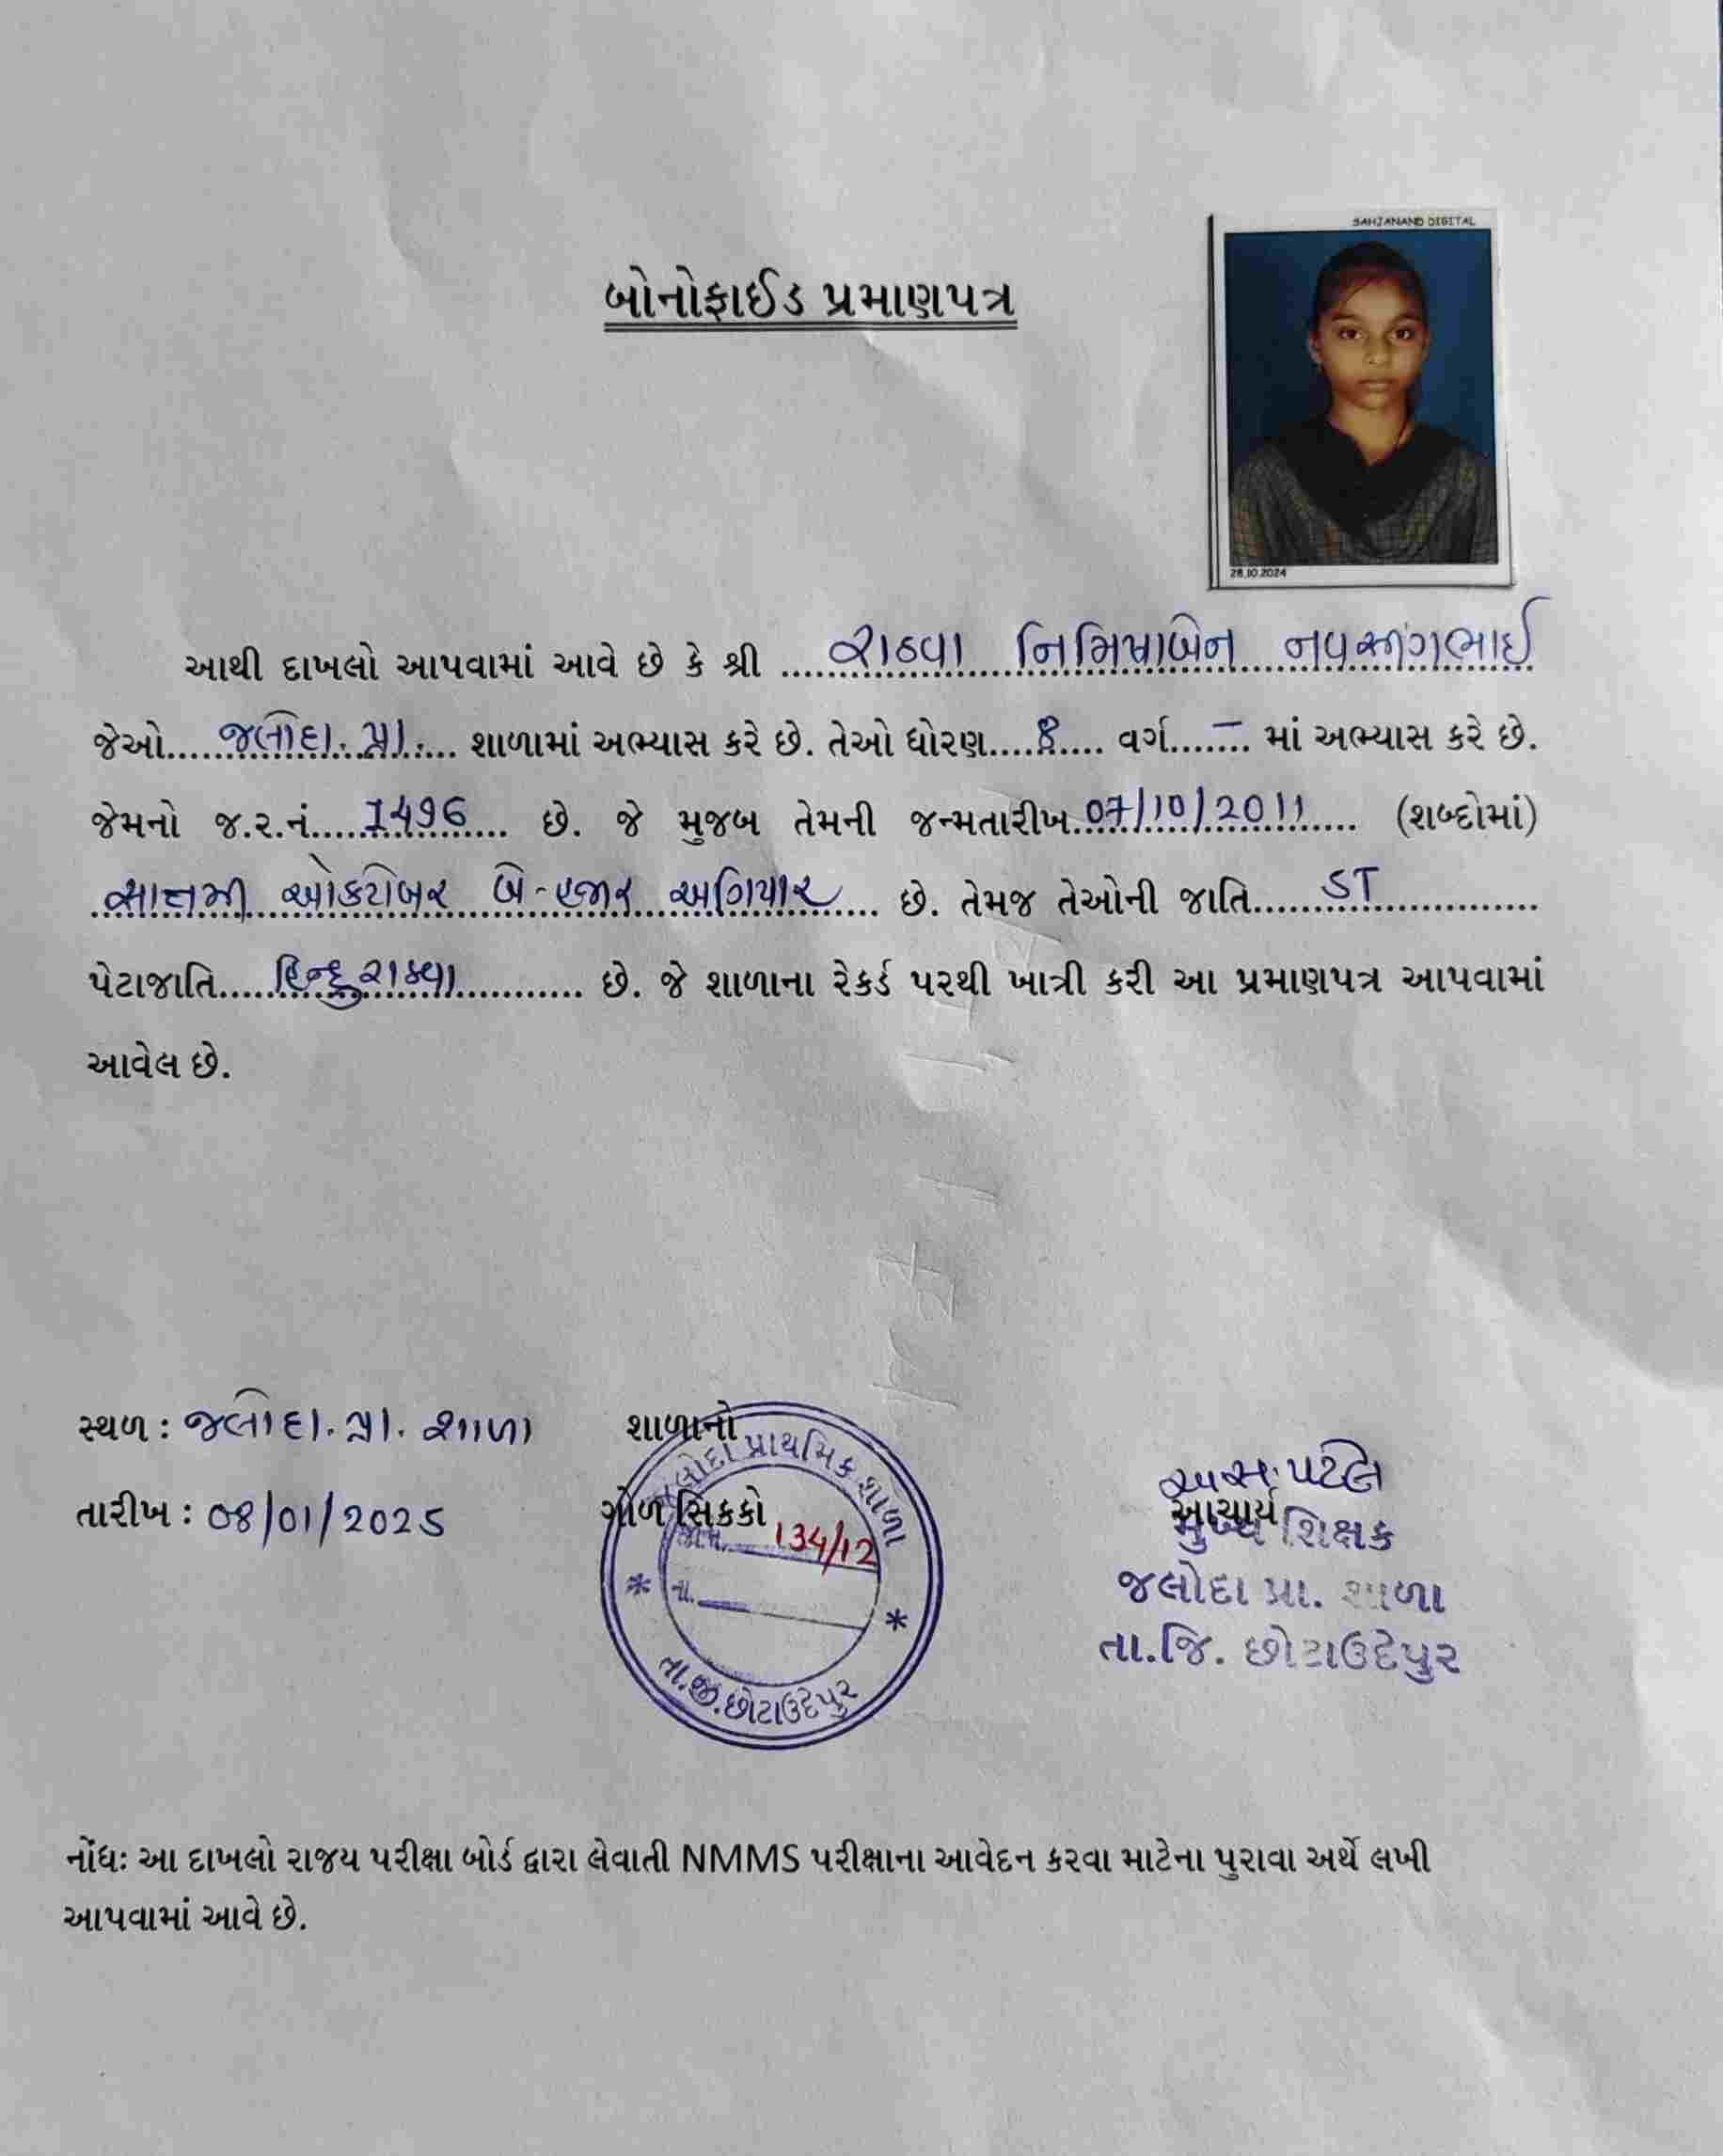 SAHJANAND DIGITAL
બોનોફાઈડ પ્રમાણપત્ર
28.10.2024
આથી દાખલો આપવામાં આવે છે કે શ્રી .... રાઠવા નિમિષાબેન નવસીંગભાઈ
જેઓ.... જલોદા. પ્રા. .... શાળામાં અભ્યાસ કરે છે. તેઓ ધોરણ....8.... વર્ગ....–.... માં અભ્યાસ કરે છે.
જેમનો જ.ર.નં.... 1496 .... છે. જે મુજબ તેમની જન્મતારીખ.. 07/10/2011 .... (શબ્દોમાં)
સાતમી ઓક્ટોબર બે-હજાર અગિયાર .... છે. તેમજ તેઓની જાતિ.... ST ....
પેટાજાતિ.... હિન્દુ રાઠવા .... છે. જે શાળાના રેકર્ડ પરથી ખાત્રી કરી આ પ્રમાણપત્ર આપવામાં
આવેલ છે.
સ્થળ : જલોદા. પ્રા. શાળા
તારીખ : 08/01/2025
શાળાનો
ગોળ સિકકો
જલોદા પ્રાથમિક શાળા
જા.નં. 134/12
તા.
તા.જી.છોટાઉદેપુર
આચાર્ય
મુખ્ય શિક્ષક
જલોદા પ્રા. શાળા
તા.જિ. છોટાઉદેપુર
નોંધઃ આ દાખલો રાજય પરીક્ષા બોર્ડ દ્વારા લેવાતી NMMS પરીક્ષાના આવેદન કરવા માટેના પુરાવા અર્થે લખી
આપવામાં આવે છે.